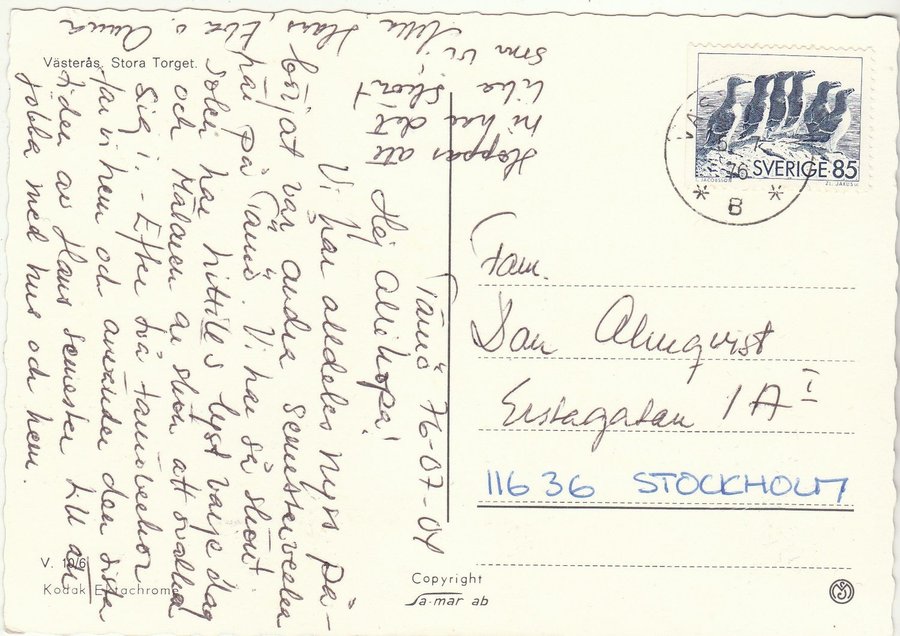 Västerås. Stora Torget.
Tärnö 76-07-04
Hej Allihopa!
Vi har alldeles nyss på-
börjat vår andra semestervecka
här på Tärnö. Vi har så skönt.
Solen har hittills lyst varje dag
och Mälaren är skön att svalka
sig i. Efter två tärnöveckor
far vi hem och använder den sista
tiden av Hans semester till att
jobba med hus och hem.
Hoppas att
ni har det
lika skönt
som vi,
Hans, Eva o. Anna
Fam.
Dan Almqvist
Erstagatan 1 A I
116 36 STOCKHOLM
SVERIGE 85
76
* B *
V. 19/6
Kodak Ektachrome
Copyright
Sa-mar ab